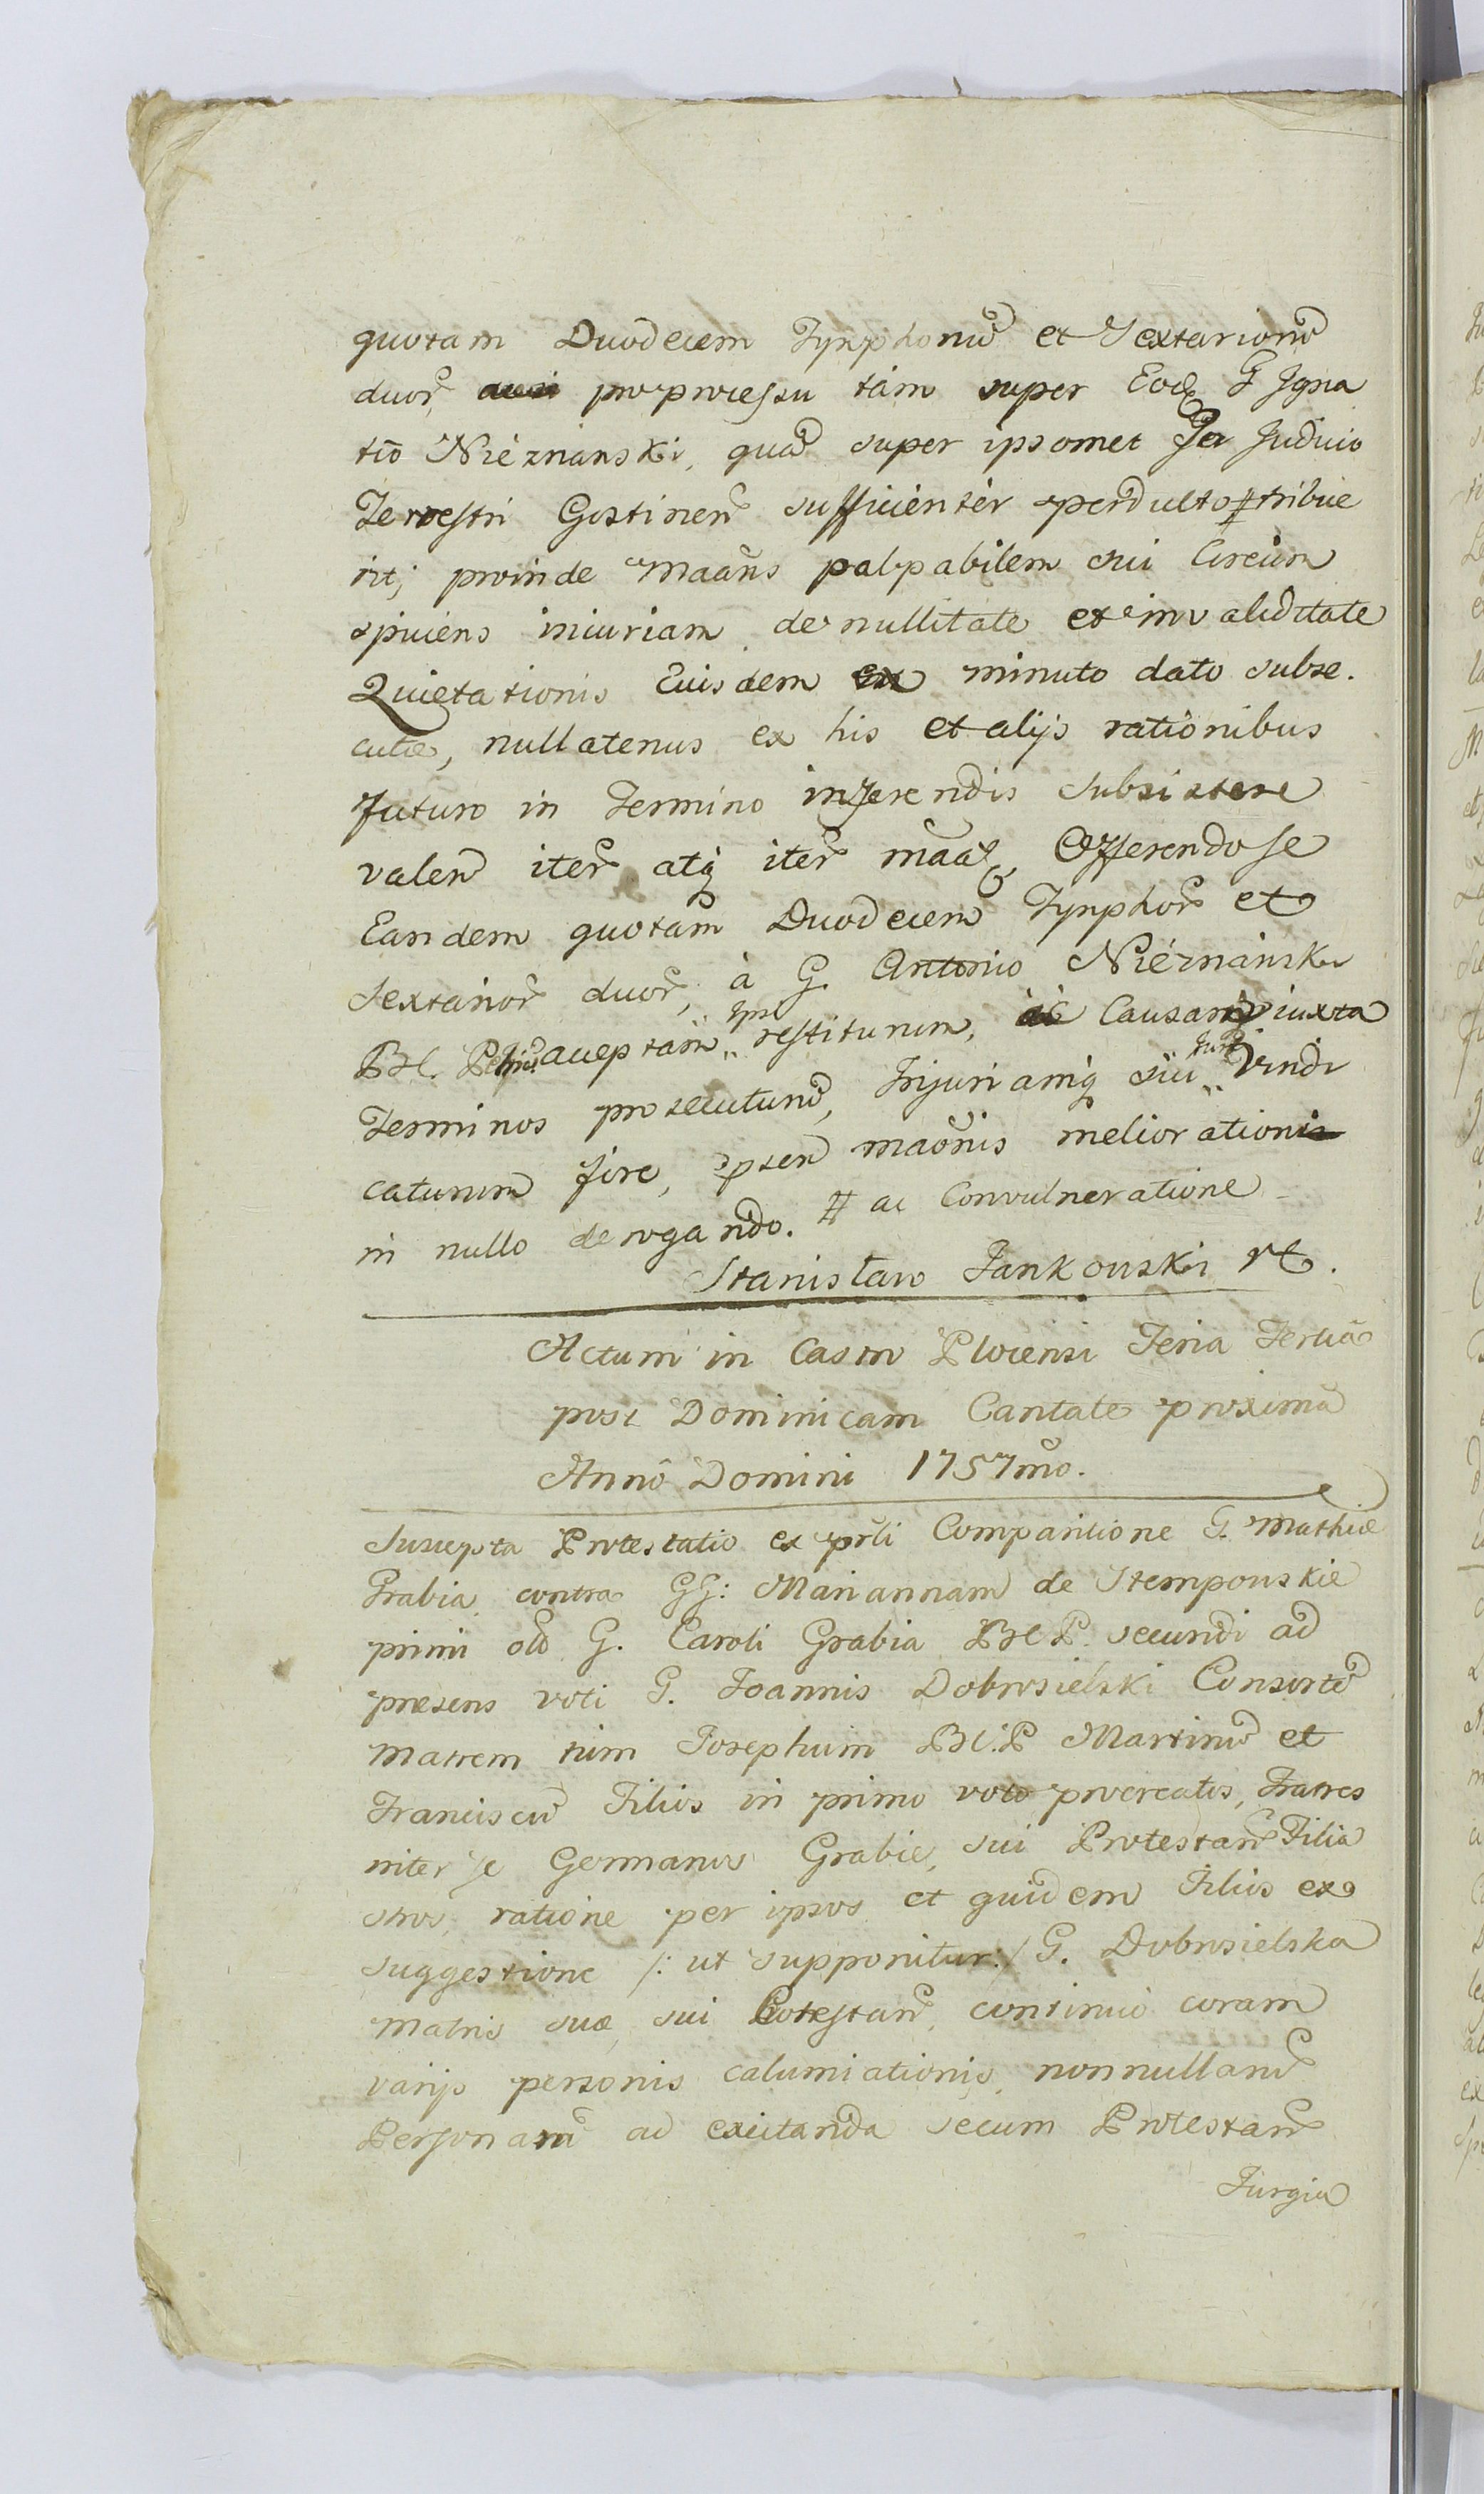 quotam Duodecem Tynphonũ et Sextarionũ
duor̃, pro processu tám super Eod̃ G Igna
tiõ Nieznanski, quã super ipsomet Per Judicio
Terrestri Gostinen̄ sufficientèr perdulto ‡ tribue
rit; proinde Maãns palpabilem sui Circum
spiciens iniuriam de nullitate et invaliditate
Quietationis Eiusdem minuto dato subse.
cutæ, nullatenus ex his et alijs rationibus
futuro in Termino inferendis subsistere
valen̄ iter̃ atq̃ iter̃ mãa Offerendo se
Eandem quotam Duodecem Tynphor̃ et
Sextarior̃ duor̃, à G. Antonio Nieznánski
P. acceptam Ips restiturum, ac Causamq̃ iuxta
Terminos prosecuturũ, Injuriamq̃ sui Jure Vindi
caturum fore, psen̄ maõnis meliorationis
in nullo derogando. ‡ ac Convulneratione
Stanisław Jankowski
Actum in Castro Plocensi Feria Tertiâ
post Dominicam Cantate proximâ
Annô Domini 1757mo.
Suscepta Protestatio ex pr̃li Comparitione G. Mathiæ
Grabia contra GG: Mariannam de Stempowskie
primi olim G. Caroli Grabia secundi ad
præsens voti G. Joannis Dobrosielski Consortẽ
Matrem tum Josephum Martinũ et
Franciscũ Filios in primo voto procreatos, Fratres
inter se Germanos Grabie, sui Protestan̄ Filia
stros, ratione per ipsos et quidem Filios ex
suggestione /: ut supponitur :/ G. Dobrosielska
Matris suæ sui Protestan̄, continuó coram
varijs personis calumiationis, nonnullarũ
Personarũ ad excitanda secum Protestan̄
Jurgia